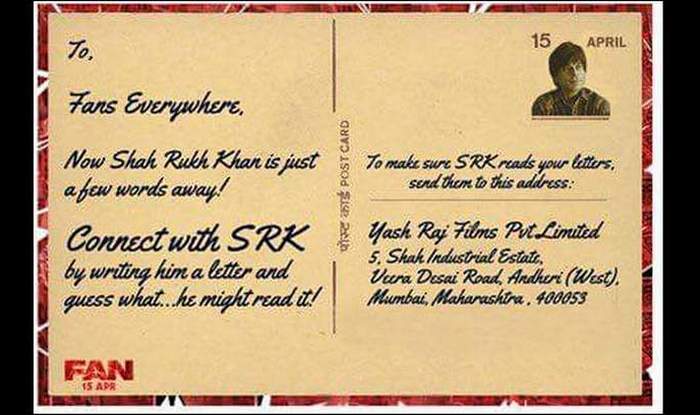 To,
Fans Everywhere,
Now Shah Rukh Khan is just
a few words away!
Connect with SRK
by writing him a letter and
guess what...he might read it!
FAN
15 APR
पोस्ट कार्ड POST CARD
15 APRIL
To make sure SRK reads your letters,
send them to this address:
Yash Raj Films Pvt Limited
5, Shah Industrial Estate,
Veera Desai Road, Andheri (West),
Mumbai, Maharashtra, 400053